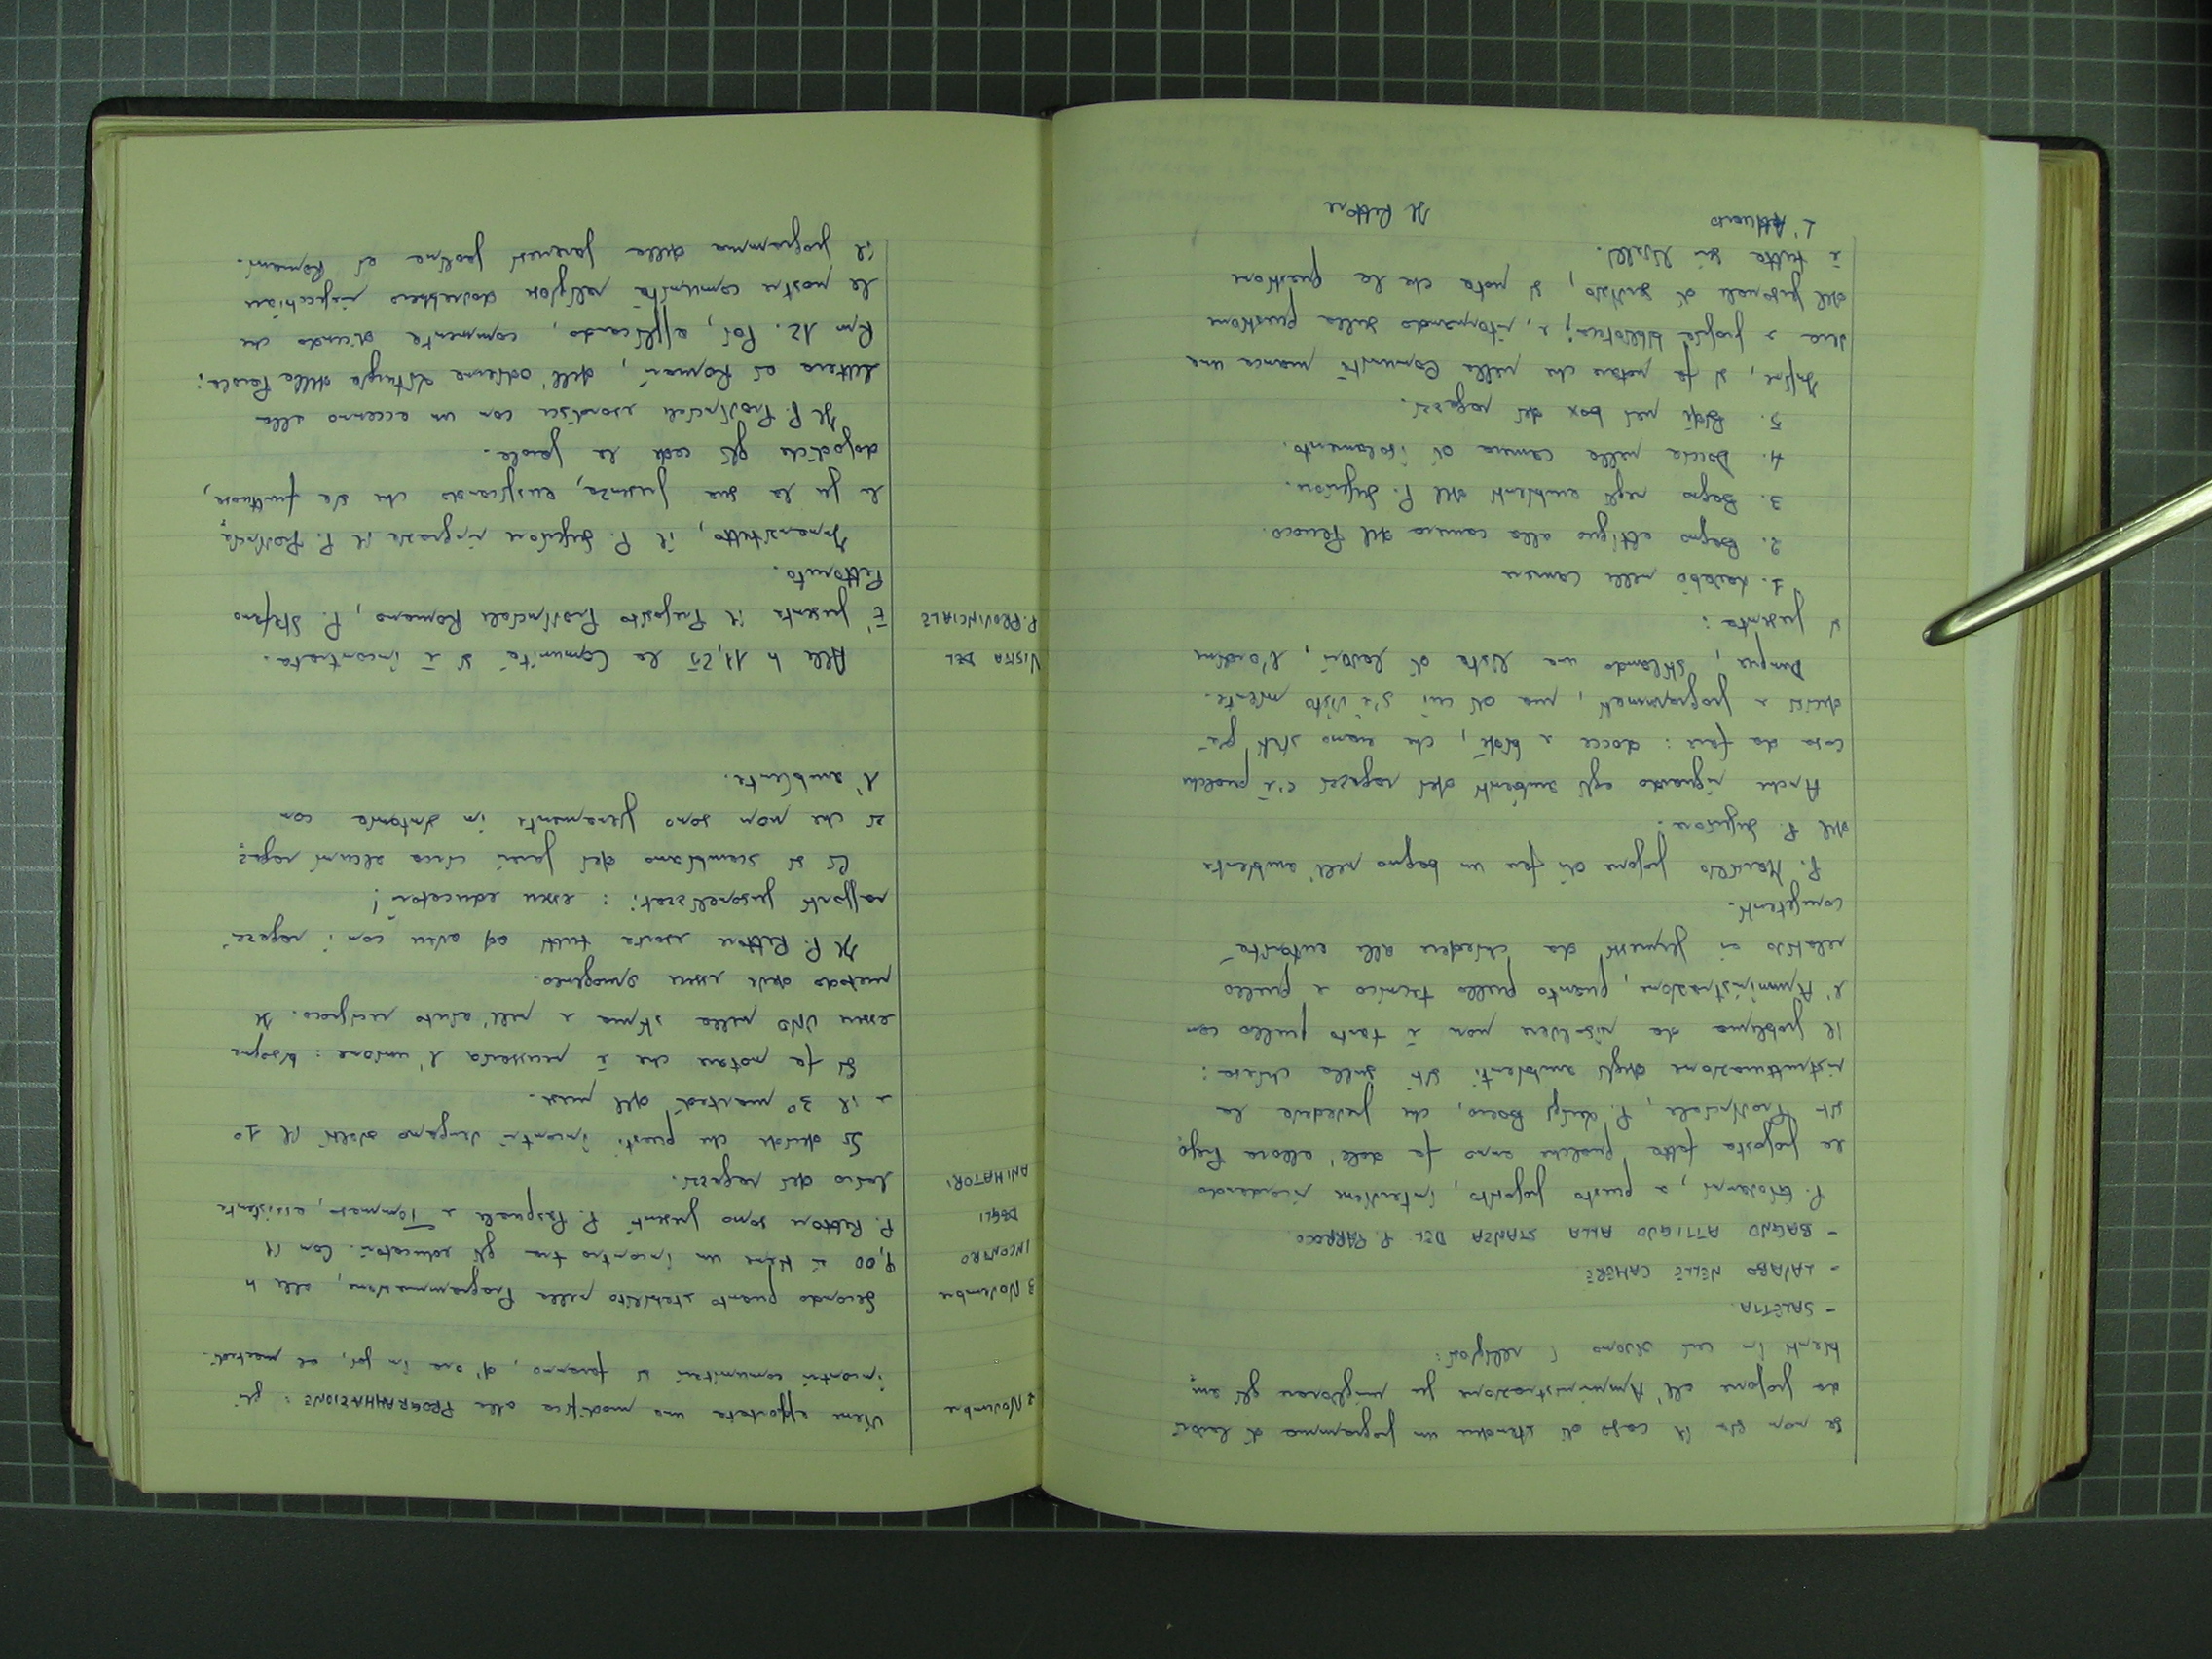 Se non sia il caso di stendere un programma di lavori
da proporre all'Amministrazione per migliorare gli am=
bienti in cui vivono i religiosi:
- SALETTA
- LAVABO NELLE CAMERE
- BAGNO ATTIGUO ALLA STANZA DEL P. PARROCO.
P. Giovanni, a questo proposito, interviene ricordando
la proposta fatta qualche anno fa dall'allora Prepo=
sito Provinciale, P. Luigi Boero, che prevedeva la
ristrutturazione degli ambienti siti sulla chiesa:
il problema da risolvere non è tanto quello con
l'Amministrazione, quanto quello tecnico e quello
relativo ai permessi da chiedere alle autorità
competenti.
P. Maurizio propone di fare un bagno nell'ambiente
del P. Superiore.
Anche riguardo agli ambienti dei ragazzi c'è qualche
cosa da fare: docce e bidè, che erano stati già
decisi e programmati, ma di cui s'è visto niente.
Dunque, stilando una lista di lavori, l'ordine
si presenta:
1. Lavabo nelle Camere
2. Bagno attiguo alla camera del Parroco.
3. Bagno negli ambienti del P. Superiore.
4. Doccia nella camera di isolamento.
5. Bidè nei box dei ragazzi.
Infine, si fa notare che nella Comunità manca una
vera e propria biblioteca; e, ritornando sulla questione
del personale di servizio, si nota che la questione
è tutta sui livelli.
L'Attuario Il Rettore
2 Novembre
Viene apportata una modifica alla PROGRAMMAZIONE: gli
incontri comunitari si faranno, d'ora in poi, al martedì.
3 Novembre
INCONTRO
DEGLI
ANIMATORI
Secondo quanto stabilito nella Programmazione, alle h
9,00 si tiene un incontro tra gli educatori. Con il
P. Rettore sono presenti P. Pasquale e Tommaso, assistente
laico dei ragazzi.
Si decide che questi incontri vengano svolti il 1°
e il 3° martedì del mese.
Si fa notare che è necessaria l'unione: bisogna
essere UNO nella stima e nell'aiuto reciproco. Il
metodo deve essere omogeneo.
Il P. Rettore esorta tutti ad avere con i ragazzi
rapporti personalizzati: essere educatori!
Ci si scambiano dei pareri circa alcuni ragaz=
zi che non sono pienamente in sintonia con
l'ambiente.
VISITA DEL
P. PROVINCIALE
Alle h 11,25 la Comunità si è incontrata.
È presente il Preposito Provinciale Romano, P. Stefano
Pettoruto.
Innanzitutto, il P. Superiore ringrazia il P. Provincia=
le per la sua presenza, auspicando che sia fruttuosa,
dopodiché gli cede la parola.
Il P. Provinciale esordisce con un accenno alla
lettera ai Romani, dell'odierna liturgia della Parola:
Rm 12. Poi, esplicando, commenta dicendo che
le nostre comunità religiose dovrebbero rispecchiare
il programma della parenesi paolina ai Romani.